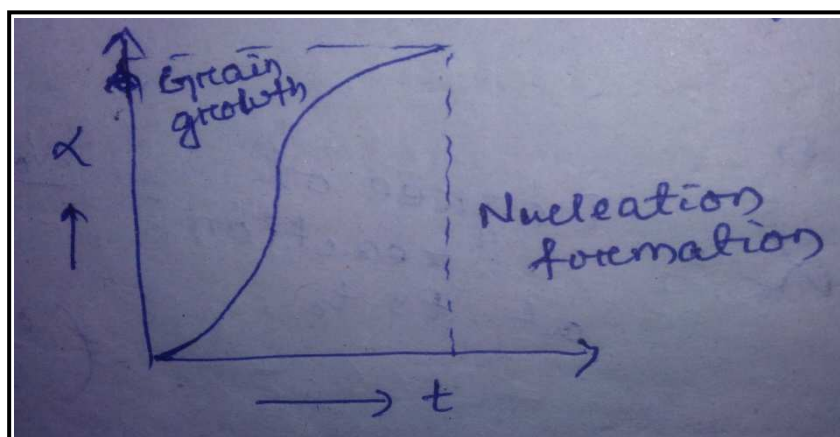 Grain
growth
α
Nucleation
formation
t